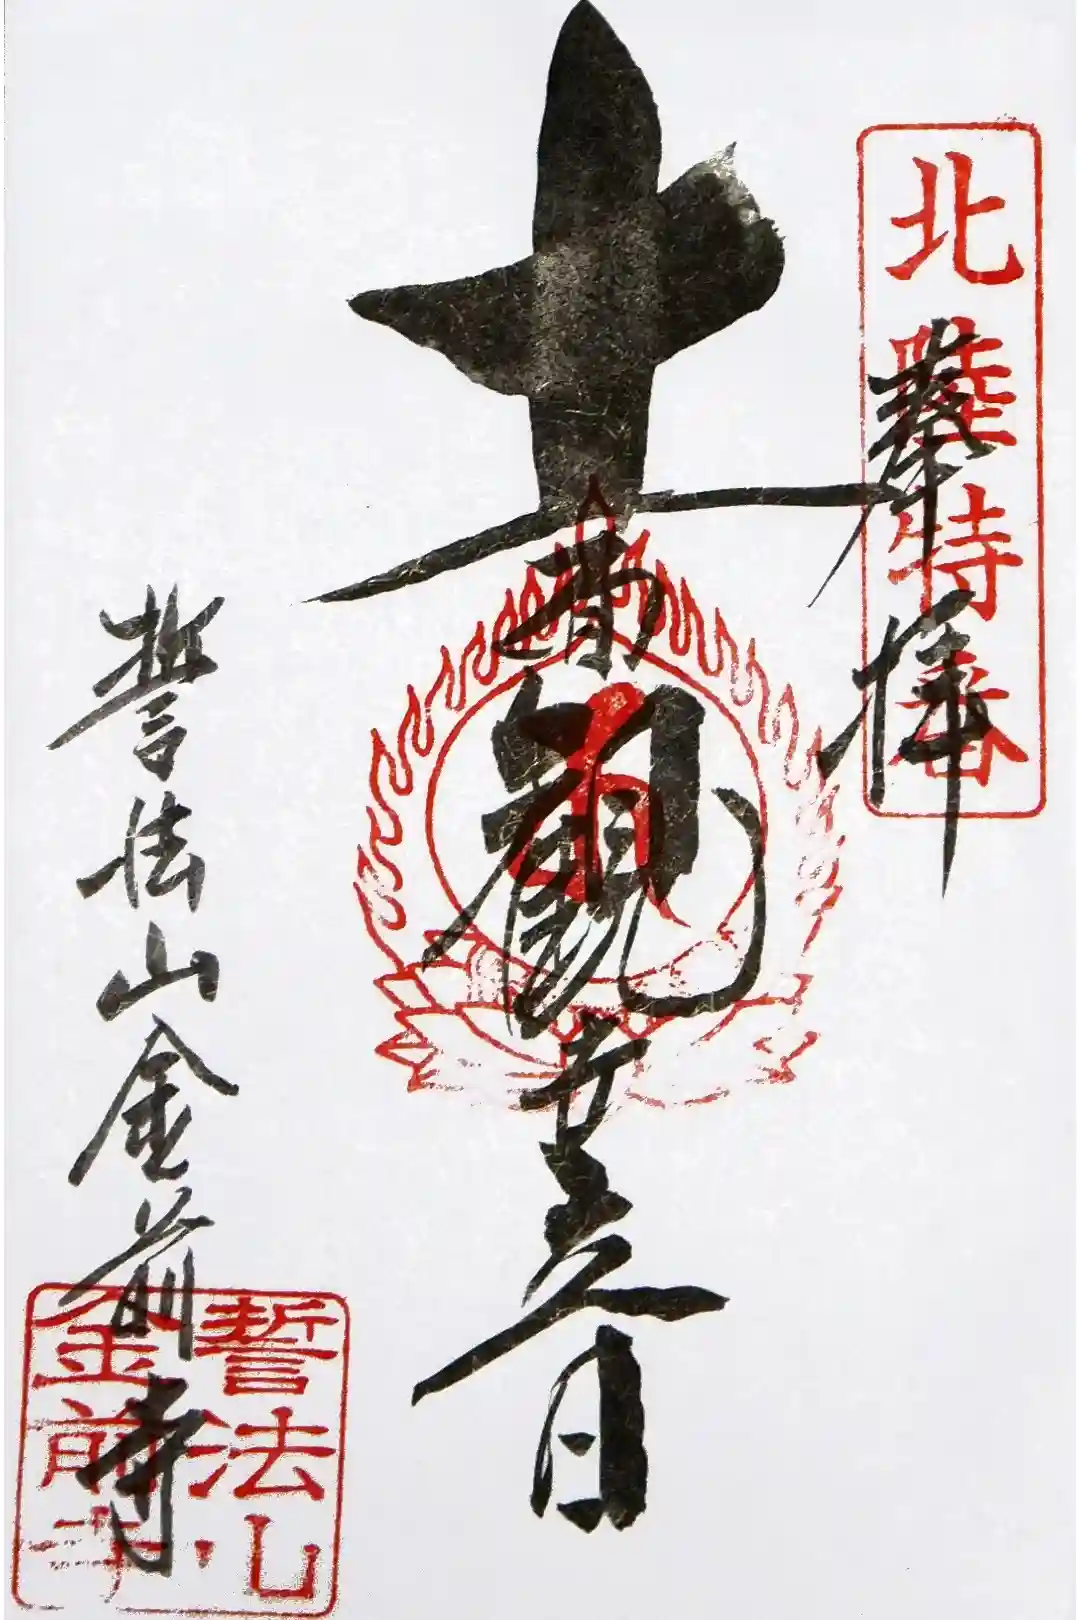 北陸特番
奉拝
十一面觀世音
誓法山金前寺
誓法山
金前寺